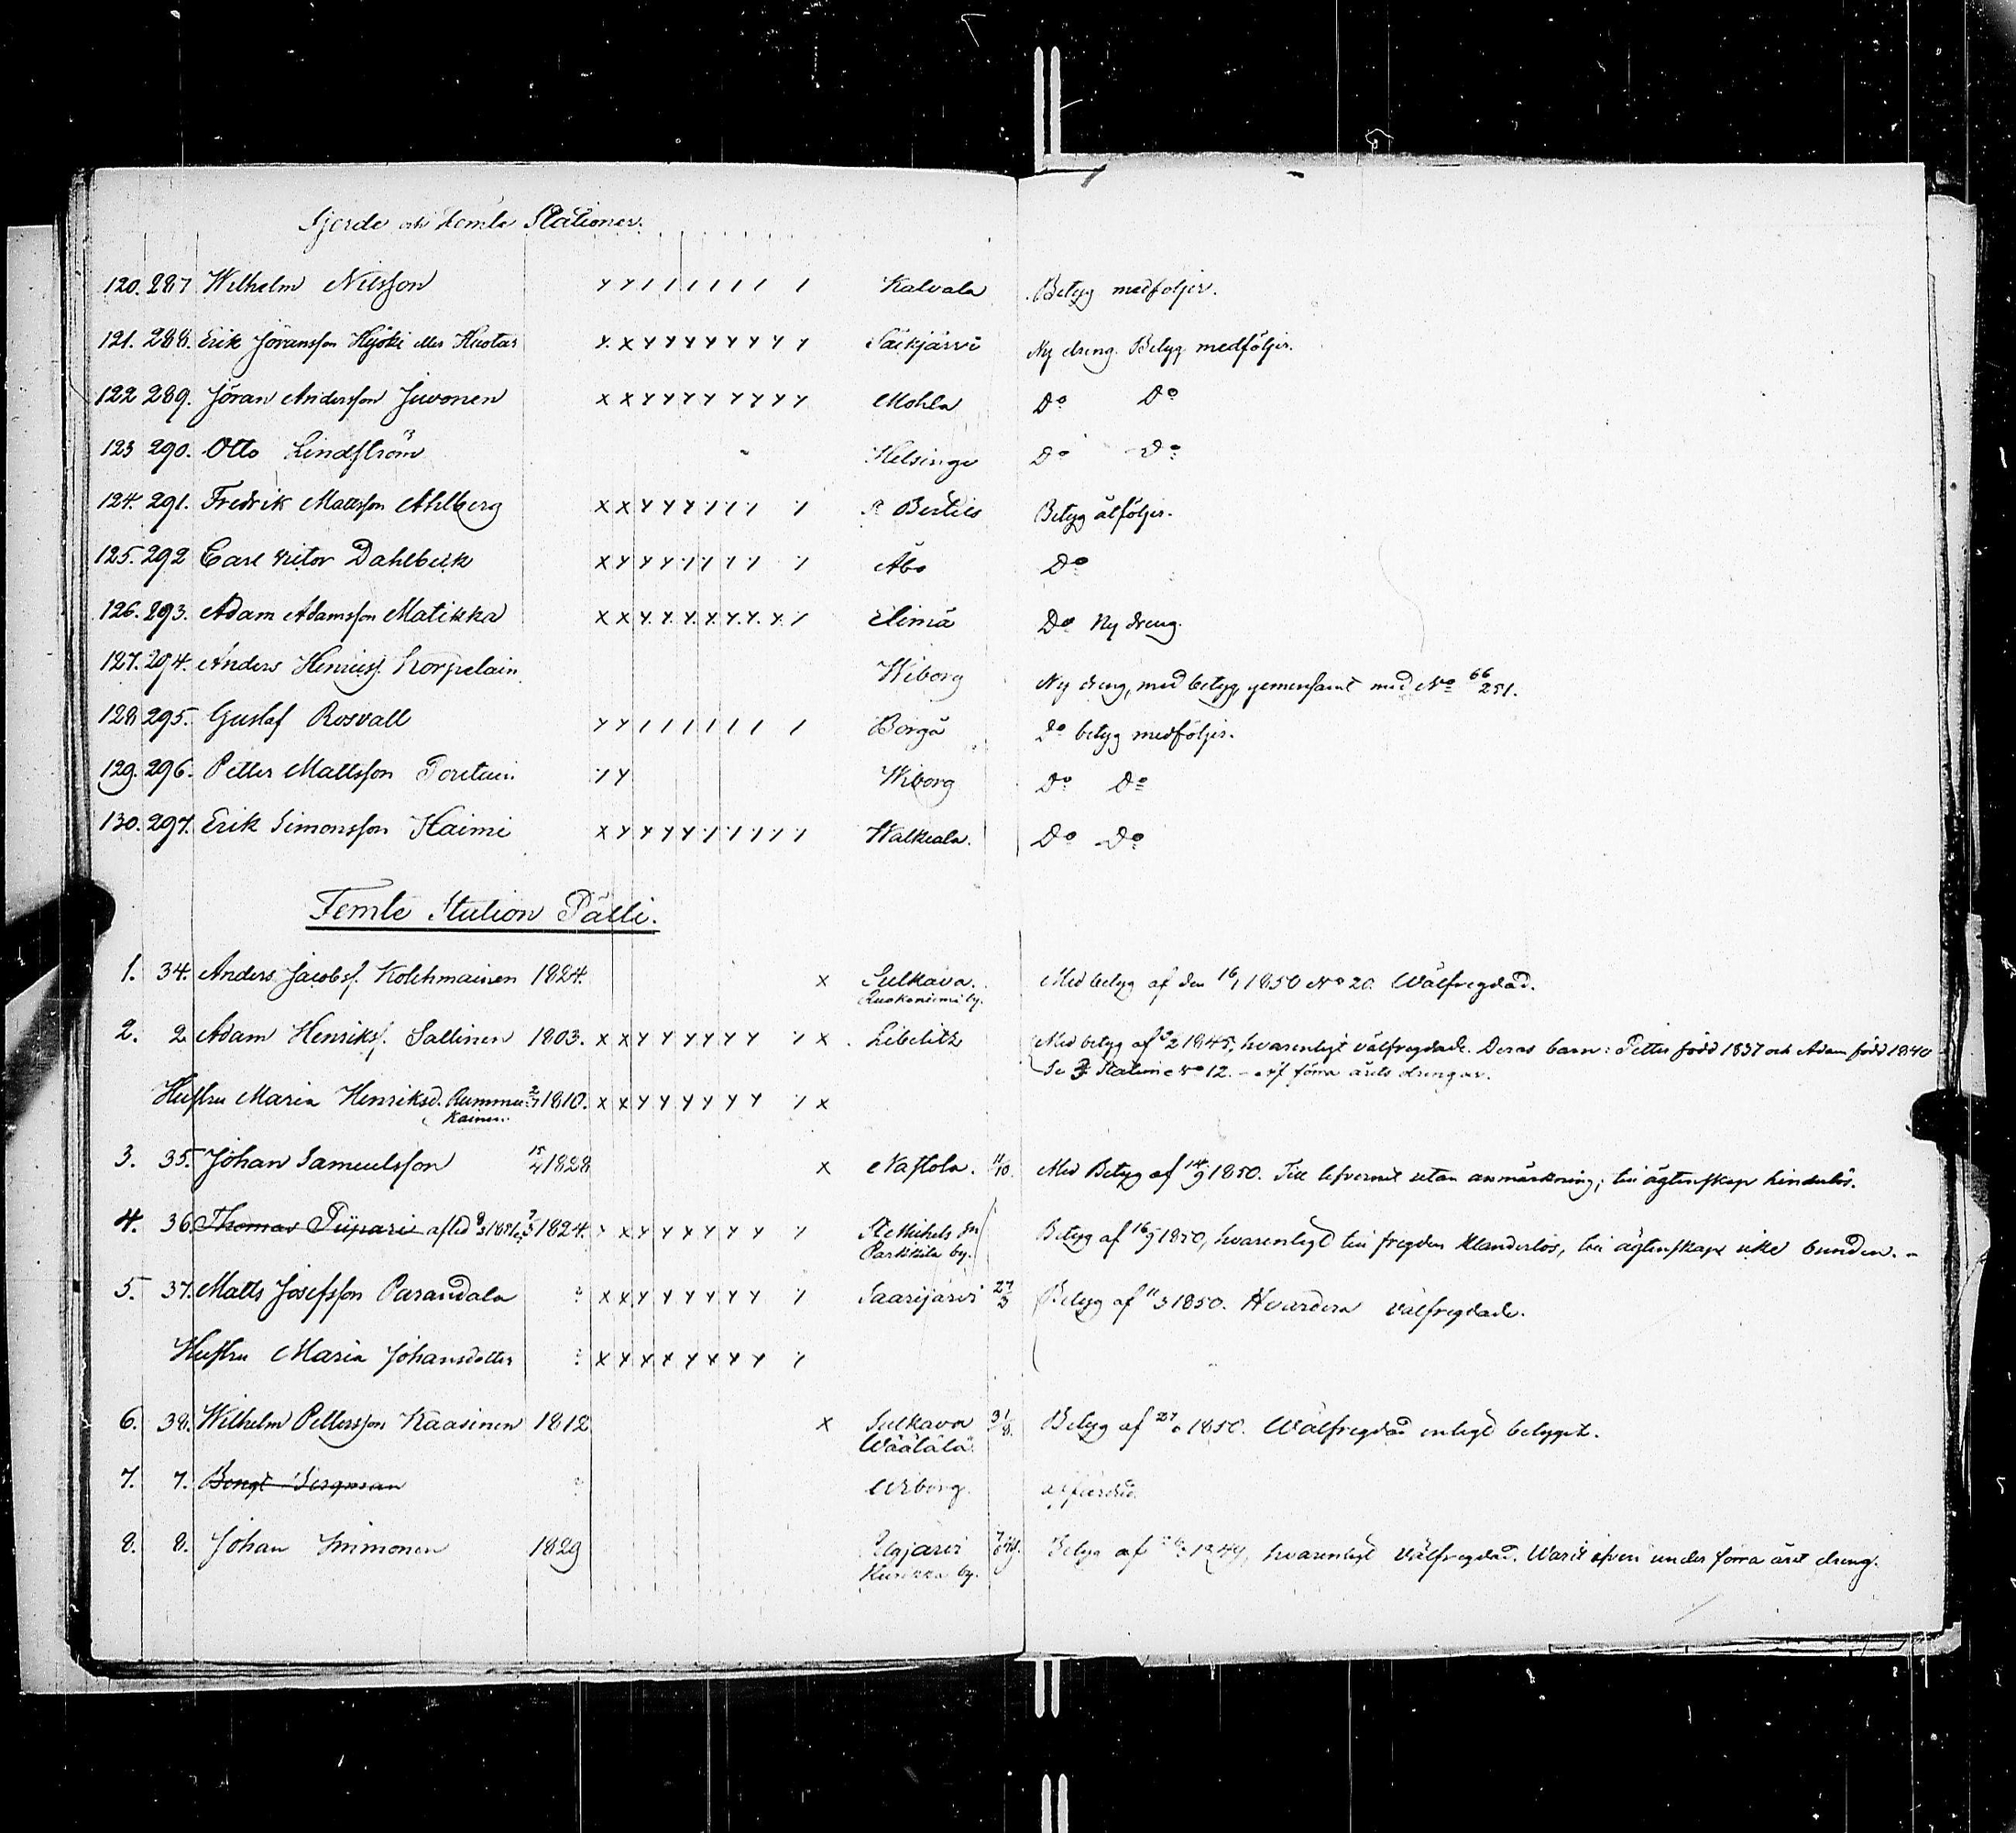 Fjerde och Femte Stationer.
120. 287 Wilhelm Nilsson Kalvala Betyg medföljer.
121. 288. Erik Jöransson Hyöki eller Huotar Säkjärvi Ny dreng. Betyg medföljer.
122 289. Jöran Andersson Juvonen Mohla Do Do
123 290. Otto Lindström Helsinge Do Do
124. 291. Fredrik Mattsson Ahlberg Betyg åtföljer.
125. 292 Carl Victor Dahlbeck Åbo Do
126. 293. Adam Adamsson Matikka Elimä Do Ny dreng.
127. 294. Anders Henrikss. Korpelain Wiborg Ny dreng, med betyg, gemensamt med No 66 251.
128 295. Gustaf Rosvall Borgå Do betyg medföljer.
129. 296. Petter Mattsson Wiborg Do Do
130. 297. Erik Simonsson Haimi Walkeala. Do Do
Femte Station Pälli.
1. 34. Anders Jacobss. Kolehmainen 1824. x Sulkava. Med betyg af den 16/1 1850 No 20. Wälfregdad.
Ruokoniemi by.
2. 2 Adam Henrikss. Sallinen 1803. x Libelitz Med betyg af 1845, hvarenligt välfregdade. Deras barn: Petter född 1837 och Adam född 1840
Se 3 Station No 12. - af förra årets drengar.
Hustru Maria Henriksd. Rummu- 1810. x
kainen.
3. 35. Johan Samuelsson 15/4 1828 x Nastola. 11/10. Med Betyg af 14/9 1850. Till lefvernet utan anmärkning; till ägtenskap hinderlös.
4. 36. Thomas Piipari afled 1824. St Michels sn Betyg af 16/9 1850, hvarenligt till fregden klanderlös, till ägtenskap icke bunden. -
Parkkila by.
5. 37. Matts Josefsson Parandala ? Saarijärvi 27/3 Betyg af 11/3 1850. Hvardera välfregdade.
Hustru Maria Johansdotter ?
6. 38. Wilhelm Pettersson Kaasinen 1812 x Sulkava 31/8. Betyg af 1850. Wälfregdad enligt betyget.
Wäätälä.
7. 7. Bengt ? Wiborg.
8. 8. Johan Immonen 1829 Betyg af 1849, hvarenligt välfregdad. Warit äfven under förra året dreng.
by.